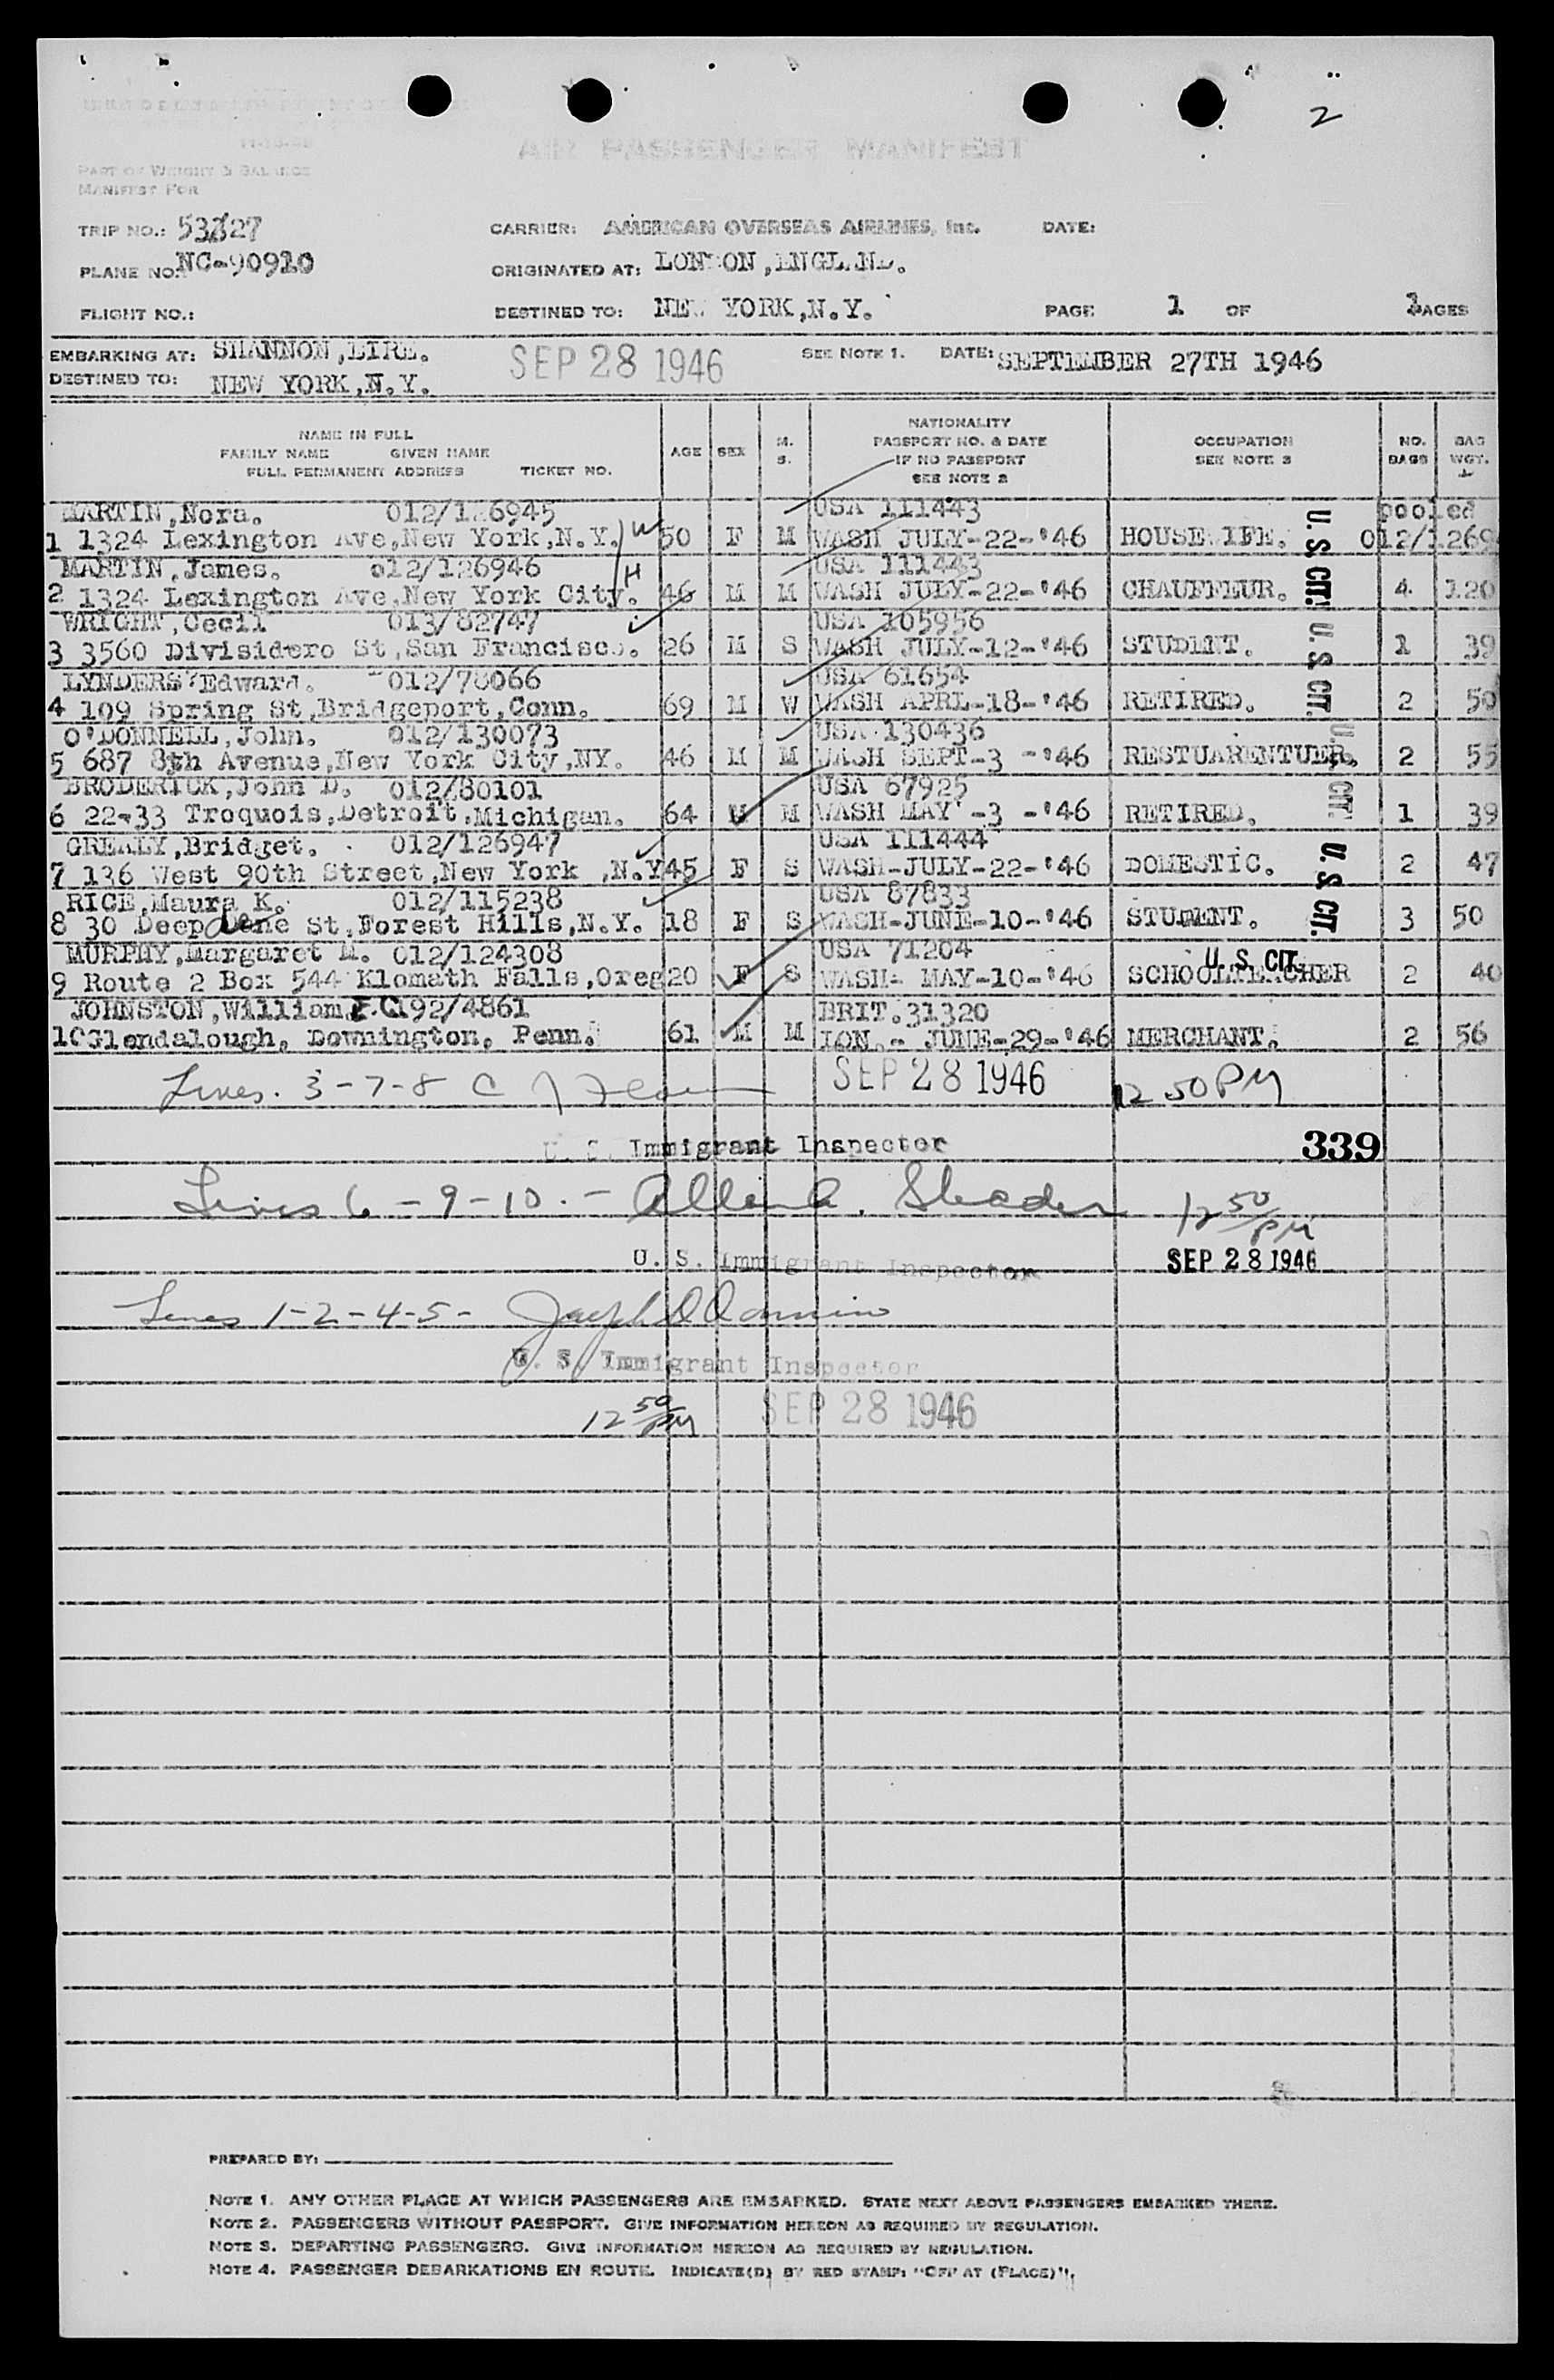 2
AIR PASSENGER MANIFEST
PART OF WEIGHT & BALANCE
MANIFEST FOR
TRIP NO.: 53327 CARRIER: AMERICAN OVERSEAS AIRLINES, Inc. DATE:
PLANE NO. NC-90910 ORIGINATED AT: LONDON, ENGLAND.
FLIGHT NO.: DESTINED TO: NEW YORK, N.Y. PAGE 1 OF 1 PAGES
EMBARKING AT: SHANNON, EIRE. SEP 28 1946 SEE NOTE 1. DATE: SEPTEMBER 27TH 1946
DESTINED TO: NEW YORK, N.Y.
NAME IN FULL
FAMILY NAME GIVEN NAME
FULL PERMANENT ADDRESS TICKET NO.
AGE
SEX
M. S.
NATIONALITY
PASSPORT NO. & DATE
IF NO PASSPORT
SEE NOTE 2
OCCUPATION
SEE NOTE 3
NO. BAGS
BAG WGT.
MARTIN, Nora. 012/126945 USA 111443 pooled
1 1324 Lexington Ave, New York, N.Y. W 50 F M WASH JULY-22-'46 HOUSEWIFE. U.S. CIT. 012/1269
MARTIN, James. 012/126946 USA 111443
2 1324 Lexington Ave, New York City. H 46 M M WASH JULY-22-'46 CHAUFFEUR. 4 120
WRIGHT, Cecil 013/82747 USA 105956
3 3560 Divisidero St, San Francisco. 26 M S WASH JULY-12-'46 STUDENT. U.S. CIT. 1 39
LYNDERS Edward. 012/78066 USA 61654
4 109 Spring St, Bridgeport, Conn. 69 M W WASH APRL-18-'46 RETIRED. 2 50
O'DONNELL, John. 012/130073 USA 130436
5 687 8th Avenue, New York City, NY. 46 M M WASH SEPT-3 -'46 RESTUARENTUER. U.S. CIT. 2 55
BRODERICK, John D. 012/80101 USA 67925
6 22-33 Troquois, Detroit, Michigan. 64 M M WASH MAY -3 -'46 RETIRED. 1 39
GREALY, Bridget. 012/126947 USA 111444
7 136 West 90th Street, New York ,N.Y 45 F S WASH-JULY-22-'46 DOMESTIC. U.S. CIT. 2 47
RICE, Maura K. 012/115238 USA 87833
8 30 Deepdene St, Forest Hills, N.Y. 18 F S WASH-JUNE-10-'46 STUDENT. 3 50
MURPHY, Margaret M. 012/124308 USA 71204 U.S. CIT.
9 Route 2 Box 544 Klomath Falls, Oreg 20 F S WASH- MAY-10-'46 SCHOOLTEACHER 2 40
JOHNSTON, William F.C. 192/4861 BRIT. 31320
10 Glendalough, Downington, Penn. 61 M M LON.- JUNE-29-'46 MERCHANT. 2 56
Lines. 3-7-8 SEP 28 1946 12 50 PM
U. S. Immigrant Inspector 339
Lines 6-9-10.- 12 50 PM
U. S. Immigrant Inspector SEP 28 1946
Lines 1-2-4-5-
U. S. Immigrant Inspector
12 50 PM SEP 28 1946
PREPARED BY:
NOTE 1. ANY OTHER PLACE AT WHICH PASSENGERS ARE EMBARKED. STATE NEXT ABOVE PASSENGERS EMBARKED THERE.
NOTE 2. PASSENGERS WITHOUT PASSPORT. GIVE INFORMATION HEREON AS REQUIRED BY REGULATION.
NOTE 3. DEPARTING PASSENGERS. GIVE INFORMATION HEREON AS REQUIRED BY REGULATION.
NOTE 4. PASSENGER DEBARKATIONS EN ROUTE. INDICATE(D) BY RED STAMP: "OFF AT (PLACE)".